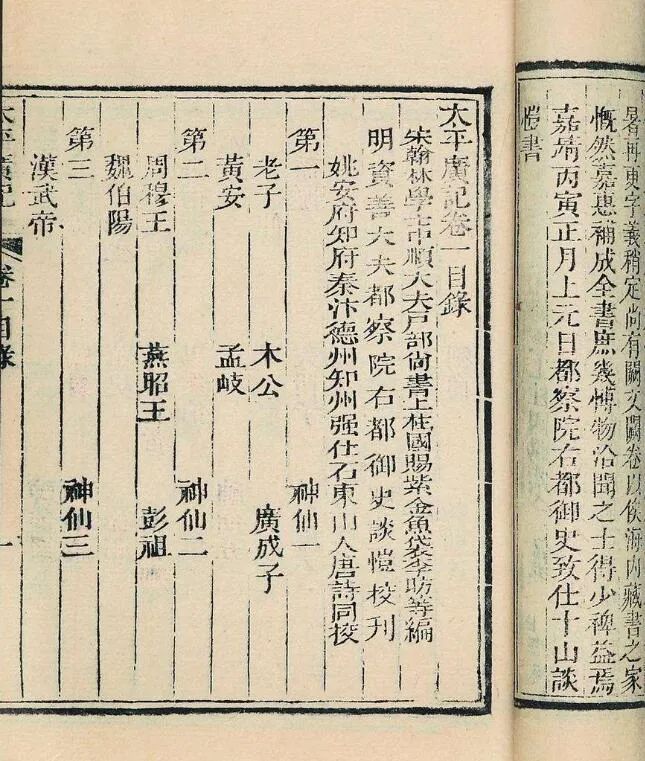 暑再更字義稍定尚有闕文闕卷以俟海内藏書之家
慨然嘉惠補成全書庶幾博物洽聞之士得少裨益焉
嘉靖丙寅正月上元日都察院右都御史致仕十山談
愷書
太平廣記卷一目錄
宋翰林學士中順大夫戶部尚書上柱國賜紫金魚袋李昉等編
明資善大夫都察院右都御史談愷校刊
姚安府知府秦汴德州知州强仕石東山人唐詩同校
第一 神仙一
老子 木公 廣成子
黃安 孟岐
第二 神仙二
周穆王 燕昭王 彭祖
魏伯陽
第三 神仙三
漢武帝
太平廣記 卷一目錄 一